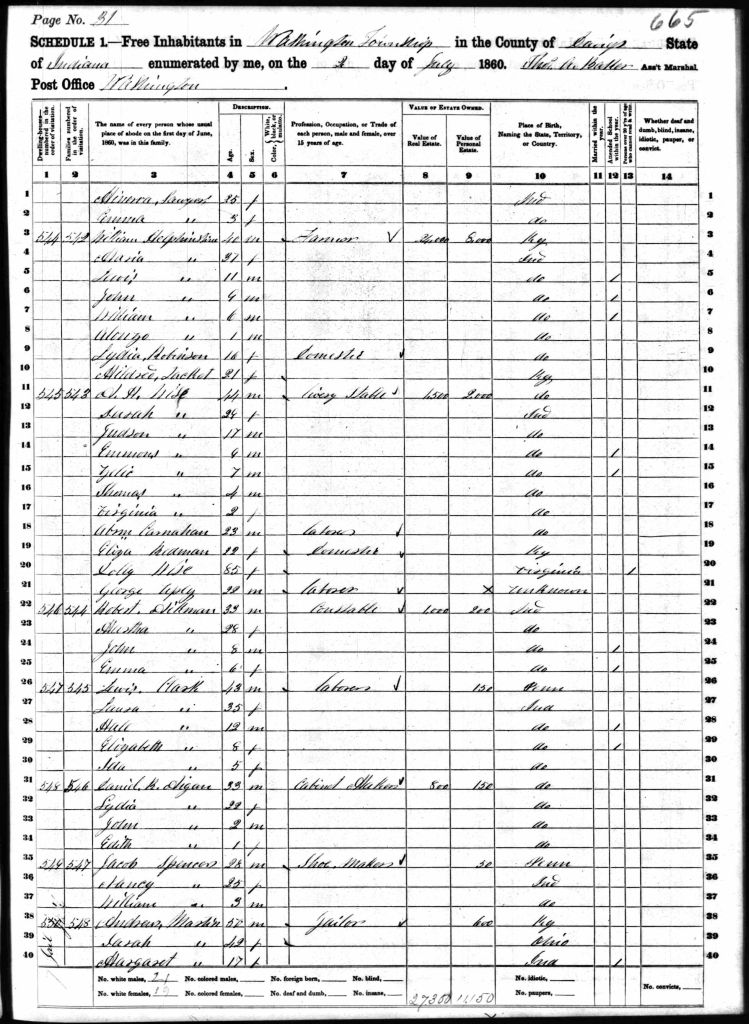 Page No. 31
665
SCHEDULE 1.—Free Inhabitants in Washington Township in the County of Daviess State
of Indiana enumerated by me, on the 2 day of July 1860. Ass't Marshal
Post Office Washington
Dwelling-houses—numbered in the order of visitation.
Families numbered in the order of visitation.
The name of every person whose usual place of abode on the first day of June, 1860, was in this family.
DESCRIPTION.
Age.
Sex.
Color, White, black, or mulatto.
Profession, Occupation, or Trade of each person, male and female, over 15 years of age.
VALUE OF ESTATE OWNED.
Value of Real Estate.
Value of Personal Estate.
Place of Birth, Naming the State, Territory, or Country.
Married within the year.
Attended School within the year.
Persons over 20 y'rs of age who cannot read & write.
Whether deaf and dumb, blind, insane, idiotic, pauper, or convict.
1 2 3 4 5 6 7 8 9 10 11 12 13 14
1 Minerva 25 f Ind 1
2 Emma " 5 f do 2
3 544 542 William Helphinstine 40 m Farmer 8,000 Ky 3
4 Maria " 27 f Ind 4
5 Lewis " 11 m do 1 5
6 John " 9 m do 1 6
7 William " 6 m do 1 7
8 Alonzo " 1 m do 8
9 Lydia Robinson 16 f Domestic do 9
10 21 f Ky 10
11 545 543 Wise 44 m Livery Stable 1,500 2,000 do 11
12 Sarah " f Ind 12
13 Judson " 17 m do 13
14 Emmons " 9 m do 1 14
15 " 7 m do 1 15
16 Thomas " 4 m do 16
17 Virginia " 2 f do 17
18 Abrm Carnahan 23 m Laborer do 18
19 Eliza Redman 22 f Domestic Ky 19
20 Wise 85 f Virginia 1 20
21 George 22 m Laborer X Unknown 21
22 546 544 Robert 33 m Constable 1,000 200 Ind 22
23 Martha " 28 f do 23
24 John " 8 m do 1 24
25 Emma " 6 f do 1 25
26 547 545 Lewis Clark 43 m Laborer 150 Penn 26
27 Laura " 35 f Ind 27
28 " 12 m do 1 28
29 Elizabeth " 8 f do 1 29
30 Ida " 5 f do 30
31 548 546 Daniel R. 33 m Cabinet Maker 800 150 do 31
32 Lydia " 22 f do 32
33 John " 2 m do 33
34 Edith " 1 f do 34
35 549 547 Jacob Spencer 28 m Shoe Maker 50 Penn 35
36 Nancy " 25 f Ind 36
37 William " 3 m do 37
38 550 548 Andrew Martin 50 m Jailor 600 Ky 38
39 Sarah " 49 f Ohio 39
40 Margaret " 17 f Ind 1 40
No. white males, 21 No. colored males, No. foreign born, No. blind, No. idiotic,
No. white females, 19 No. colored females, No. deaf and dumb, No. insane, 27300 14150 No. paupers, No. convicts,